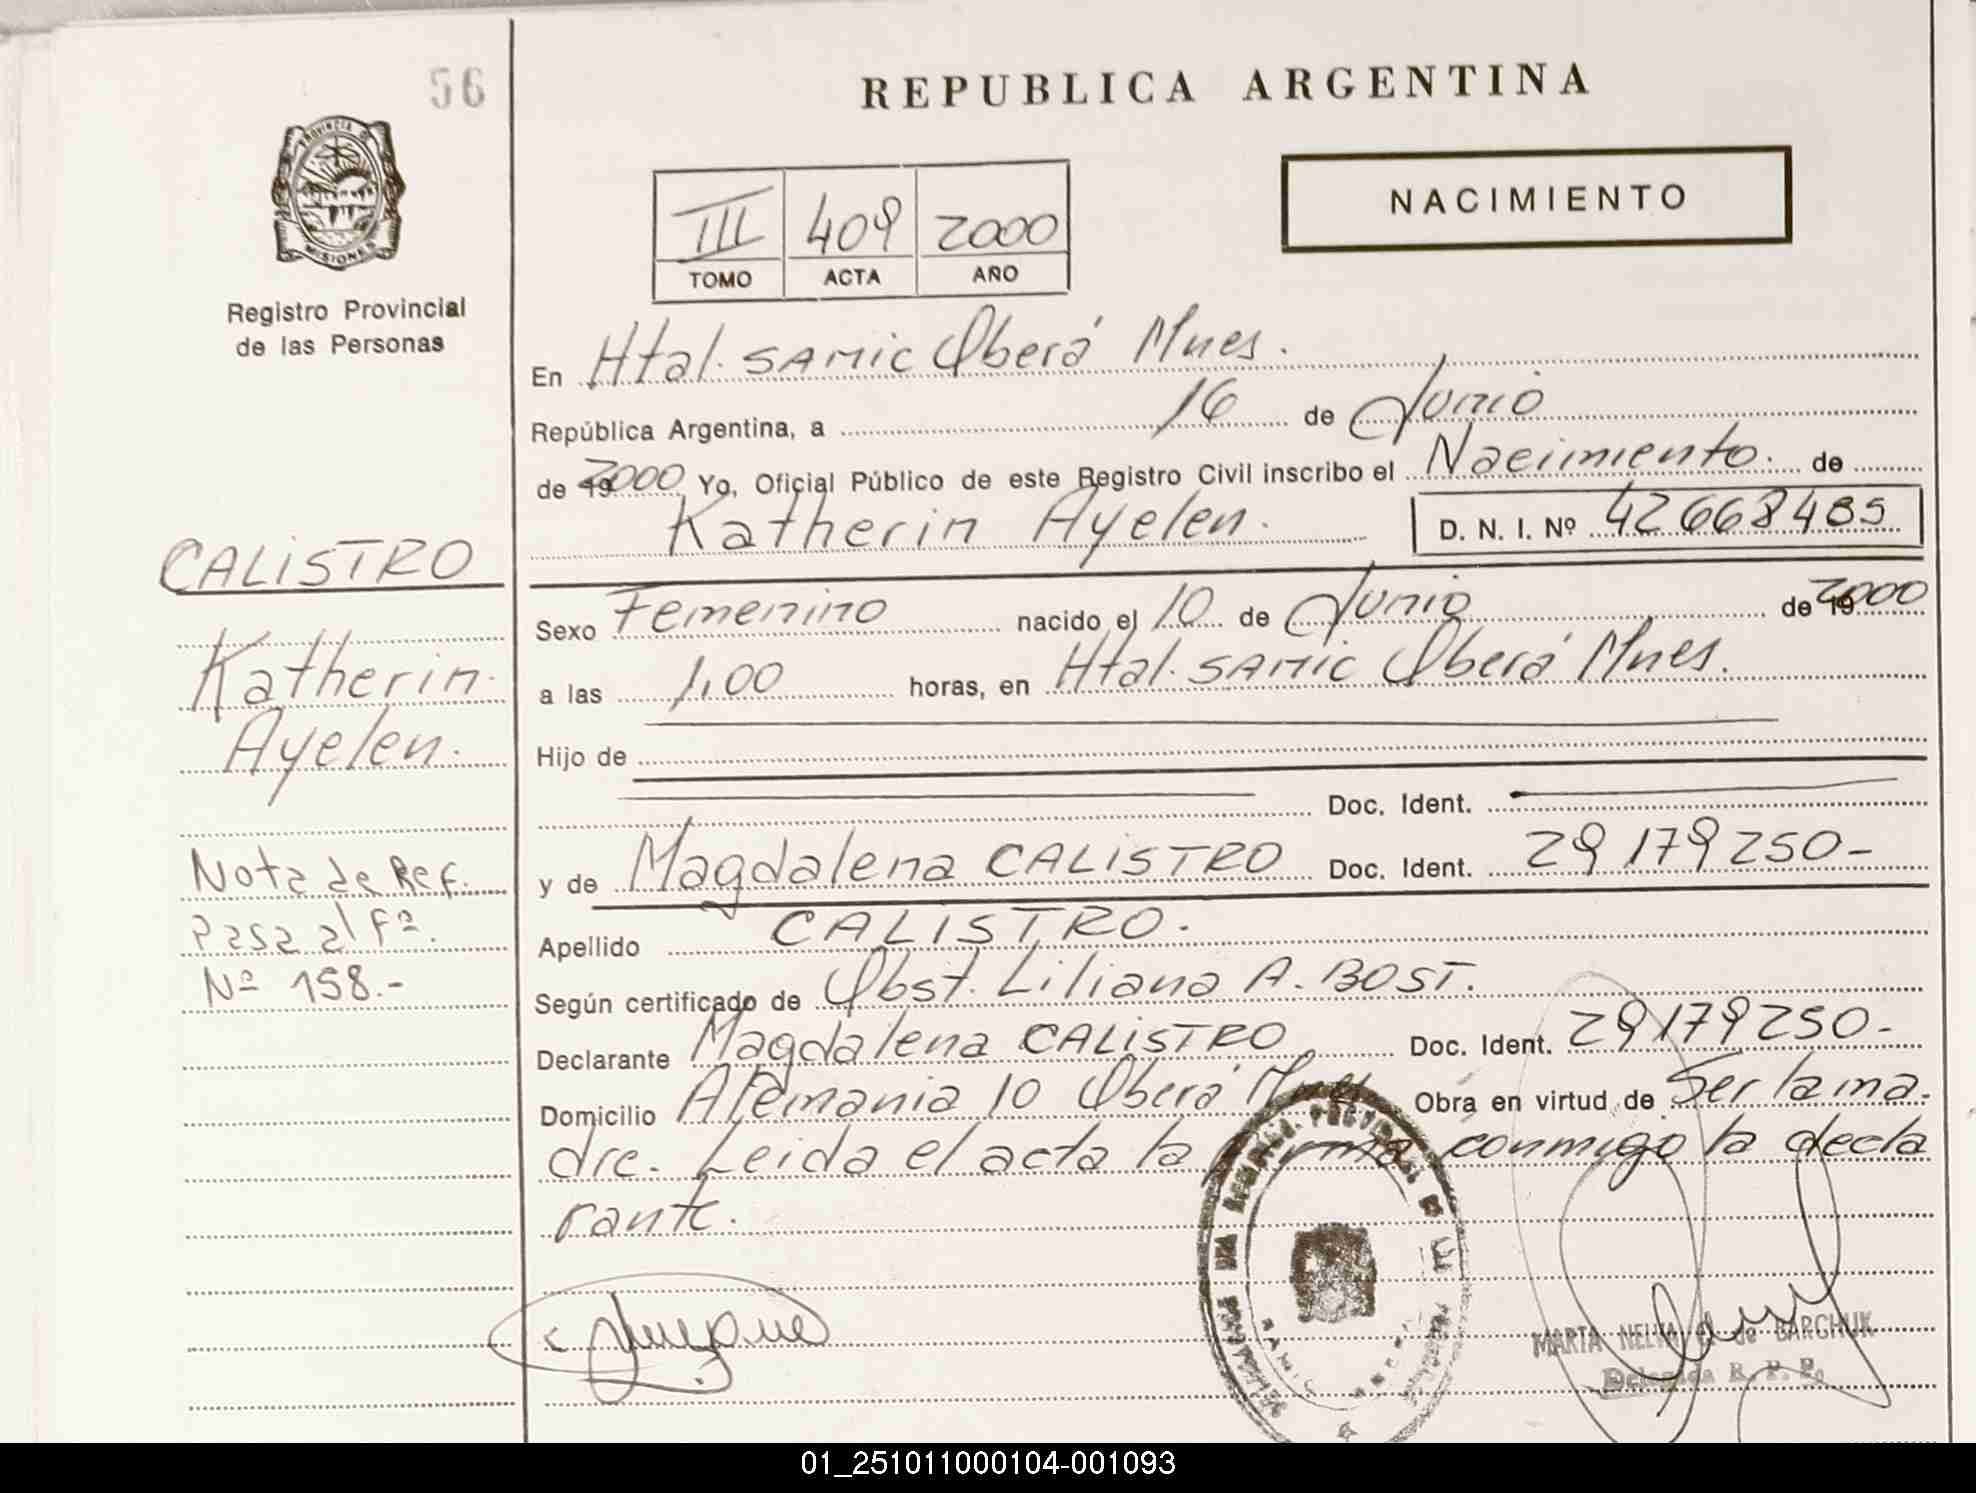 56
REPUBLICA ARGENTINA
PROVINCIA DE
MISIONES
NACIMIENTO
III 409 2000
TOMO ACTA AÑO
Registro Provincial
de las Personas
En Htal. SAMIC Oberá Mnes.
República Argentina, a 16 de Junio
de 2000 Yo, Oficial Público de este Registro Civil inscribo el Nacimiento. de
Katherin Ayelen. D. N. I. Nº 42668485
CALISTRO
Katherin
Ayelen.
Nota de Ref.
Pasa al Fº.
Nº 158.-
Sexo Femenino nacido el 10 de Junio de 2000
a las 1,00 horas, en Htal. SAMIC Oberá Mnes.
Hijo de
Doc. Ident.
y de Magdalena CALISTRO Doc. Ident. 29179250-
Apellido CALISTRO.
Según certificado de Obst. Liliana A. BOST.
Declarante Magdalena CALISTRO Doc. Ident. 29179250-
Domicilio Alemania 10 Oberá Mnes Obra en virtud de Ser la ma-
dre. Leida el acta la firma conmigo la decla
rante.
MARTA NELIDA de BARCHUK
Delegada R. P. P.
01_251011000104-001093